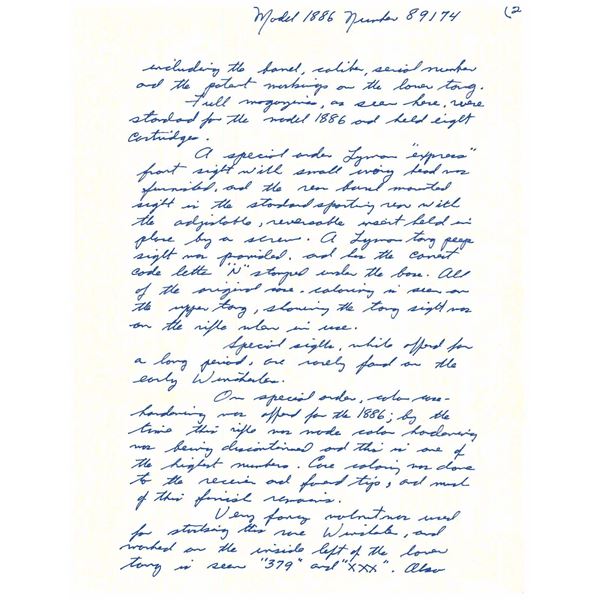 Model 1886 Number 89174 (2
including the barrel, caliber, serial number
and the patent markings on the lower tang.
Full magazines, as seen here, were
standard for the model 1886 and held eight
cartridges.
A special order Lyman "express"
front sight with small ivory bead was
furnished, and the rear barrel mounted
sight is the standard sporting rear with
the adjustable, reversable insert held in
place by a screw. A Lyman tang peep
sight was provided, and has the correct
code letter "N" stamped under the base. All
of the original case-coloring is seen on
the upper tang, showing the tang sight was
on the rifle when in use.
Special sights, while offered for
a long period, are rarely found on the
early Winchesters.
On special order, color case-
hardening was offered for the 1886; by the
time this rifle was made color hardening
was being discontinued and this is one of
the highest numbers. Case coloring was done
to the receiver and forend tips, and much
of this finish remains.
Very fancy walnut was used
for stocking this rare Winchester, and
marked on the inside left of the lower
tang is seen "379" and "XXX". Also